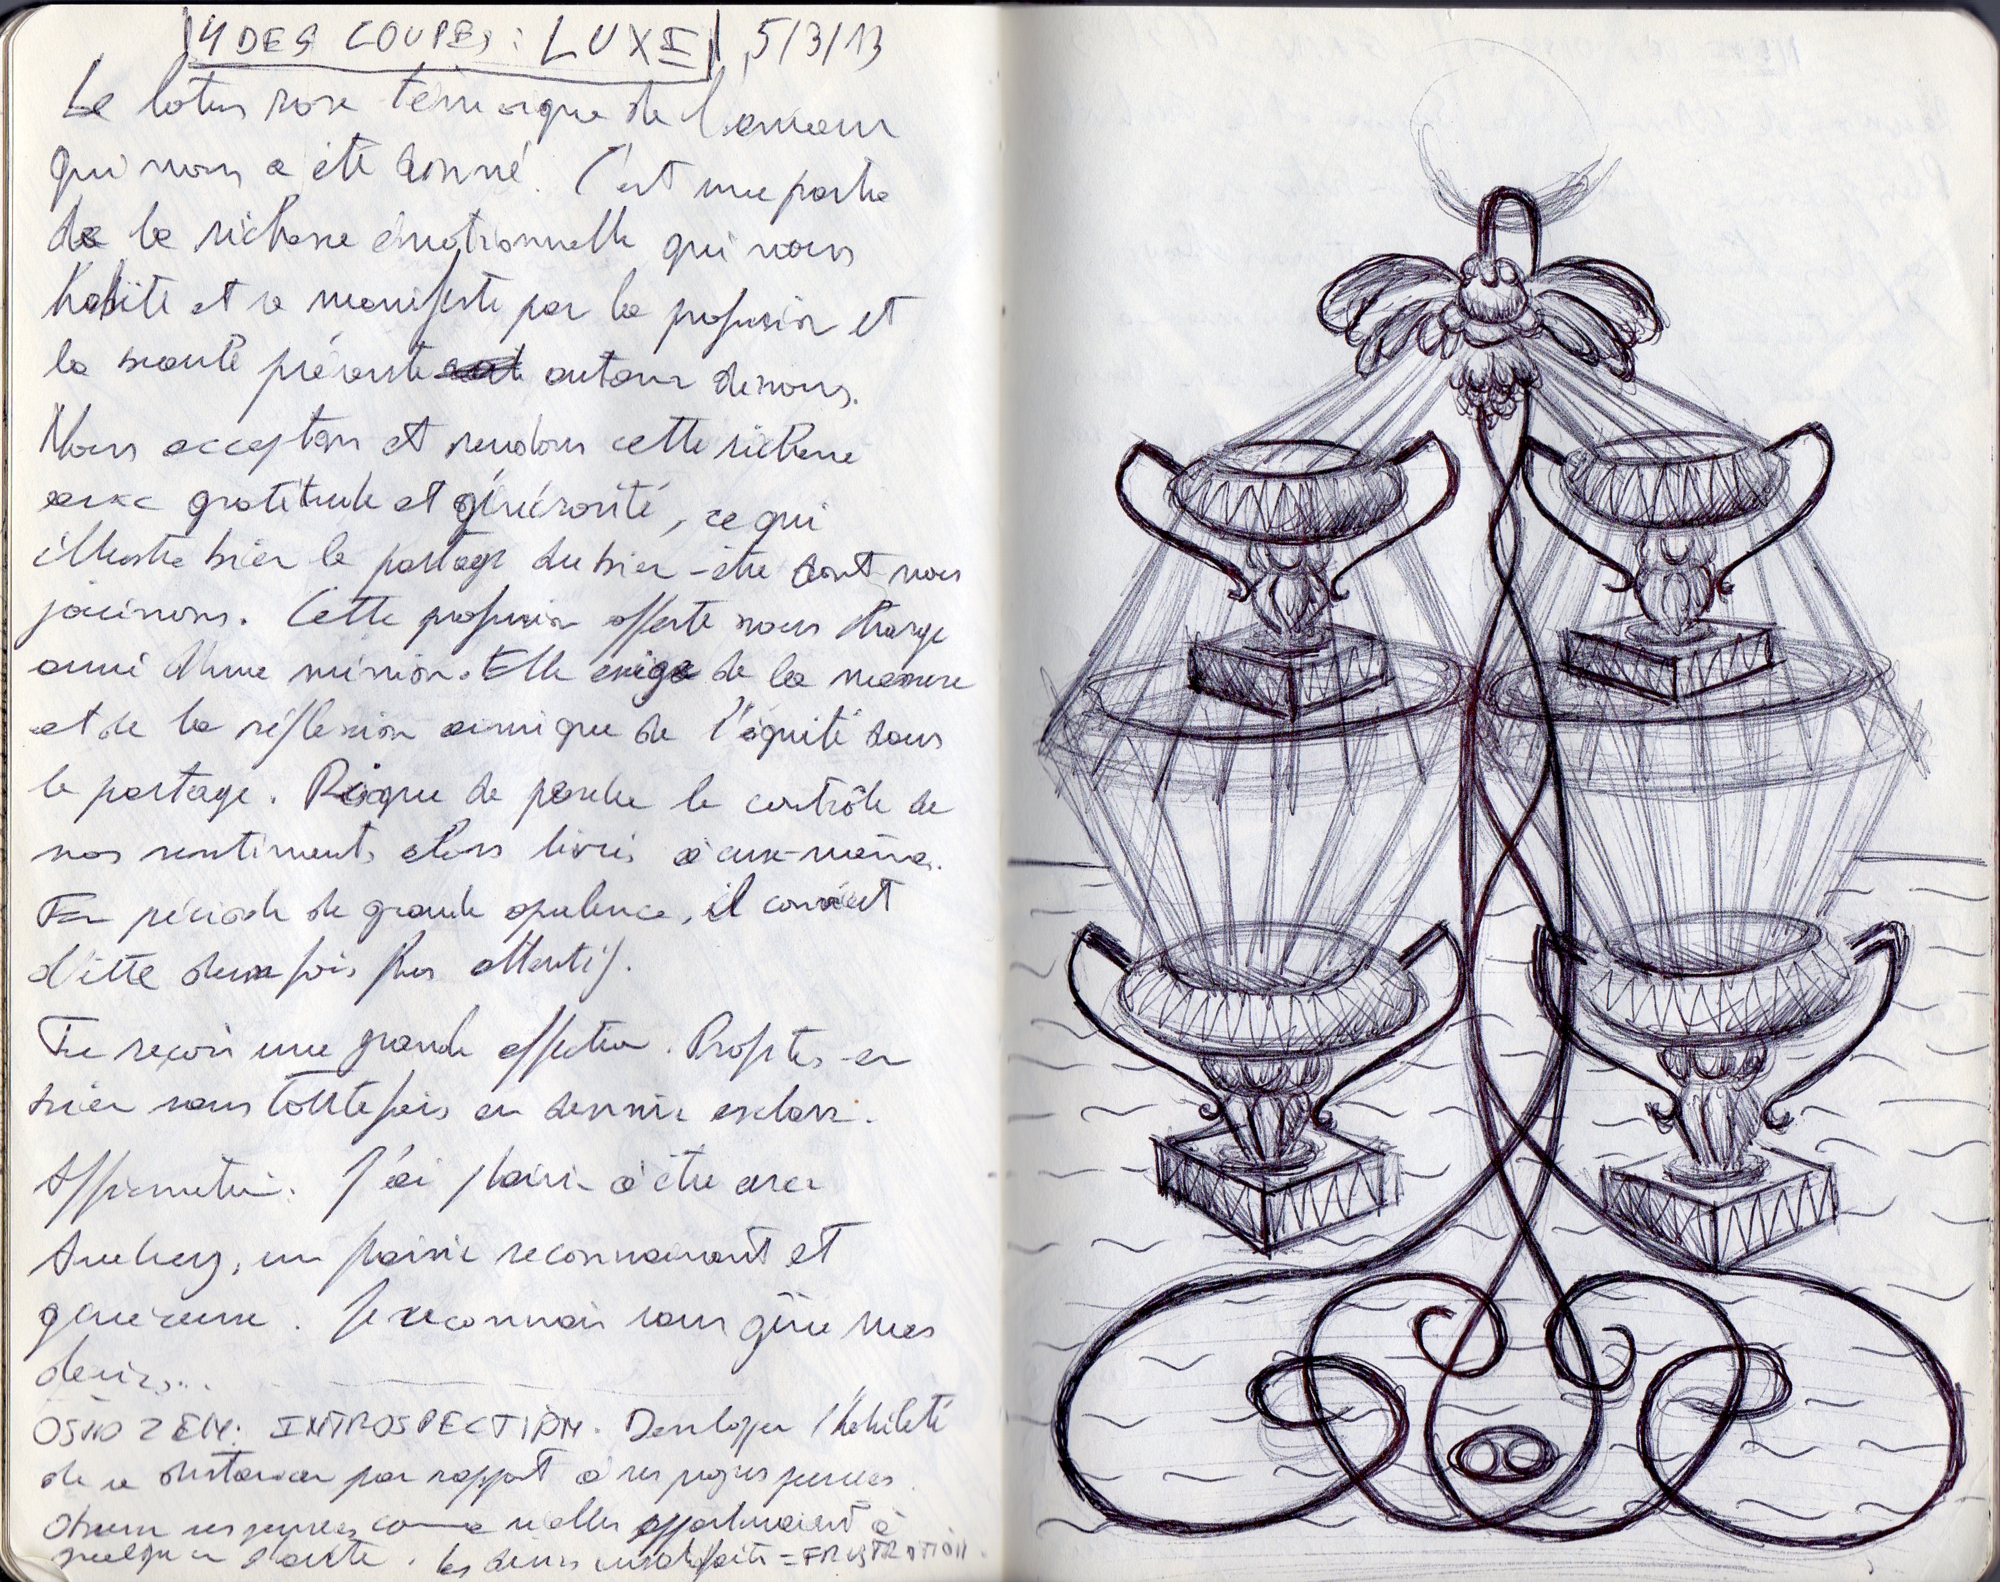 4 DES COUPES : LUXE 5/3/13
Le lotus rose témoigne de l'amour
qui nous a été donné. C'est une partie
de la richesse émotionnelle qui nous
habite et se manifeste par la profusion et
la beauté présente autour de nous.
Nous acceptons et rendons cette richesse
avec gratitude et générosité, ce qui
illustre bien le partage du bien-être dont nous
jouissons. Cette profusion offerte nous charge
aussi d'une mission. Elle exige de la mesure
et de la réflexion ainsi que de l'équité dans
le partage. Risque de perdre le contrôle de
nos sentiments alors livrés à eux-mêmes.
En période de grande opulence, il convient
d'être deux fois plus attentif.
Tu reçois une grande affection. Profites-en
bien sans toutefois en devenir esclave.
Affirmation : J'ai plaisir à être avec
un plaisir reconnaissant et
généreux. Je reconnais sans gêne mes
désirs...
OSHO ZEN : INTROSPECTION. Développer l'habileté
de se distancier par rapport à ses propres pensées.
Observer ses pensées comme si elles appartenaient à
quelqu'un d'autre. Les désirs insatisfaits = FRUSTRATION.